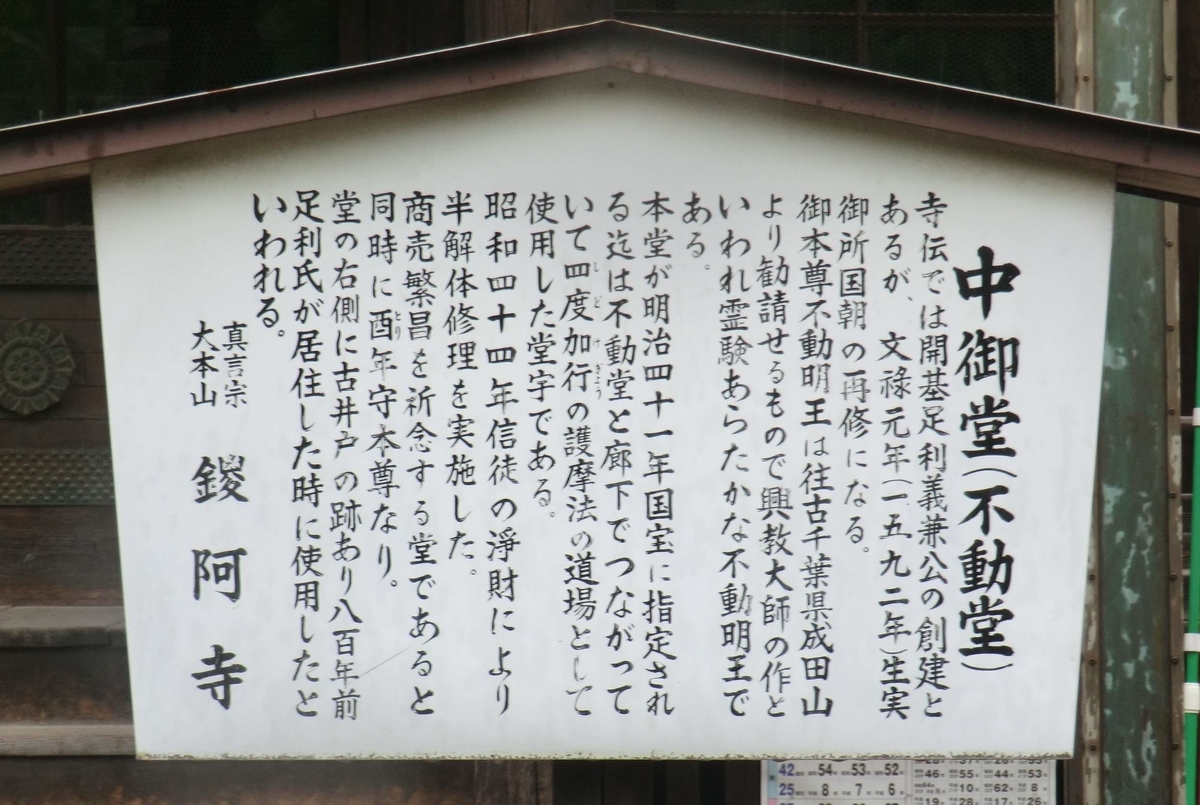 中御堂(不動堂)
寺伝では開基足利義兼公の創建と
あるが、文禄元年(一五九二年)生実
御所国朝の再修になる。
御本尊不動明王は往古千葉県成田山
より勧請せるもので興教大師の作と
いわれ霊験あらたかな不動明王で
ある。
本堂が明治四十一年国宝に指定され
る迄は不動堂と廊下でつながって
いて四度加行の護摩法の道場として
しどけぎょう
使用した堂宇である。
昭和四十四年信徒の浄財により
半解体修理を実施した。
商売繁昌を祈念する堂であると
同時に酉年守本尊なり。
とり
堂の右側に古井戸の跡あり八百年前
足利氏が居住した時に使用したと
いわれる。
真言宗
大本山
鑁阿寺
42 54 53 52
25 8 7 6
46 55 44 53
10 62 8